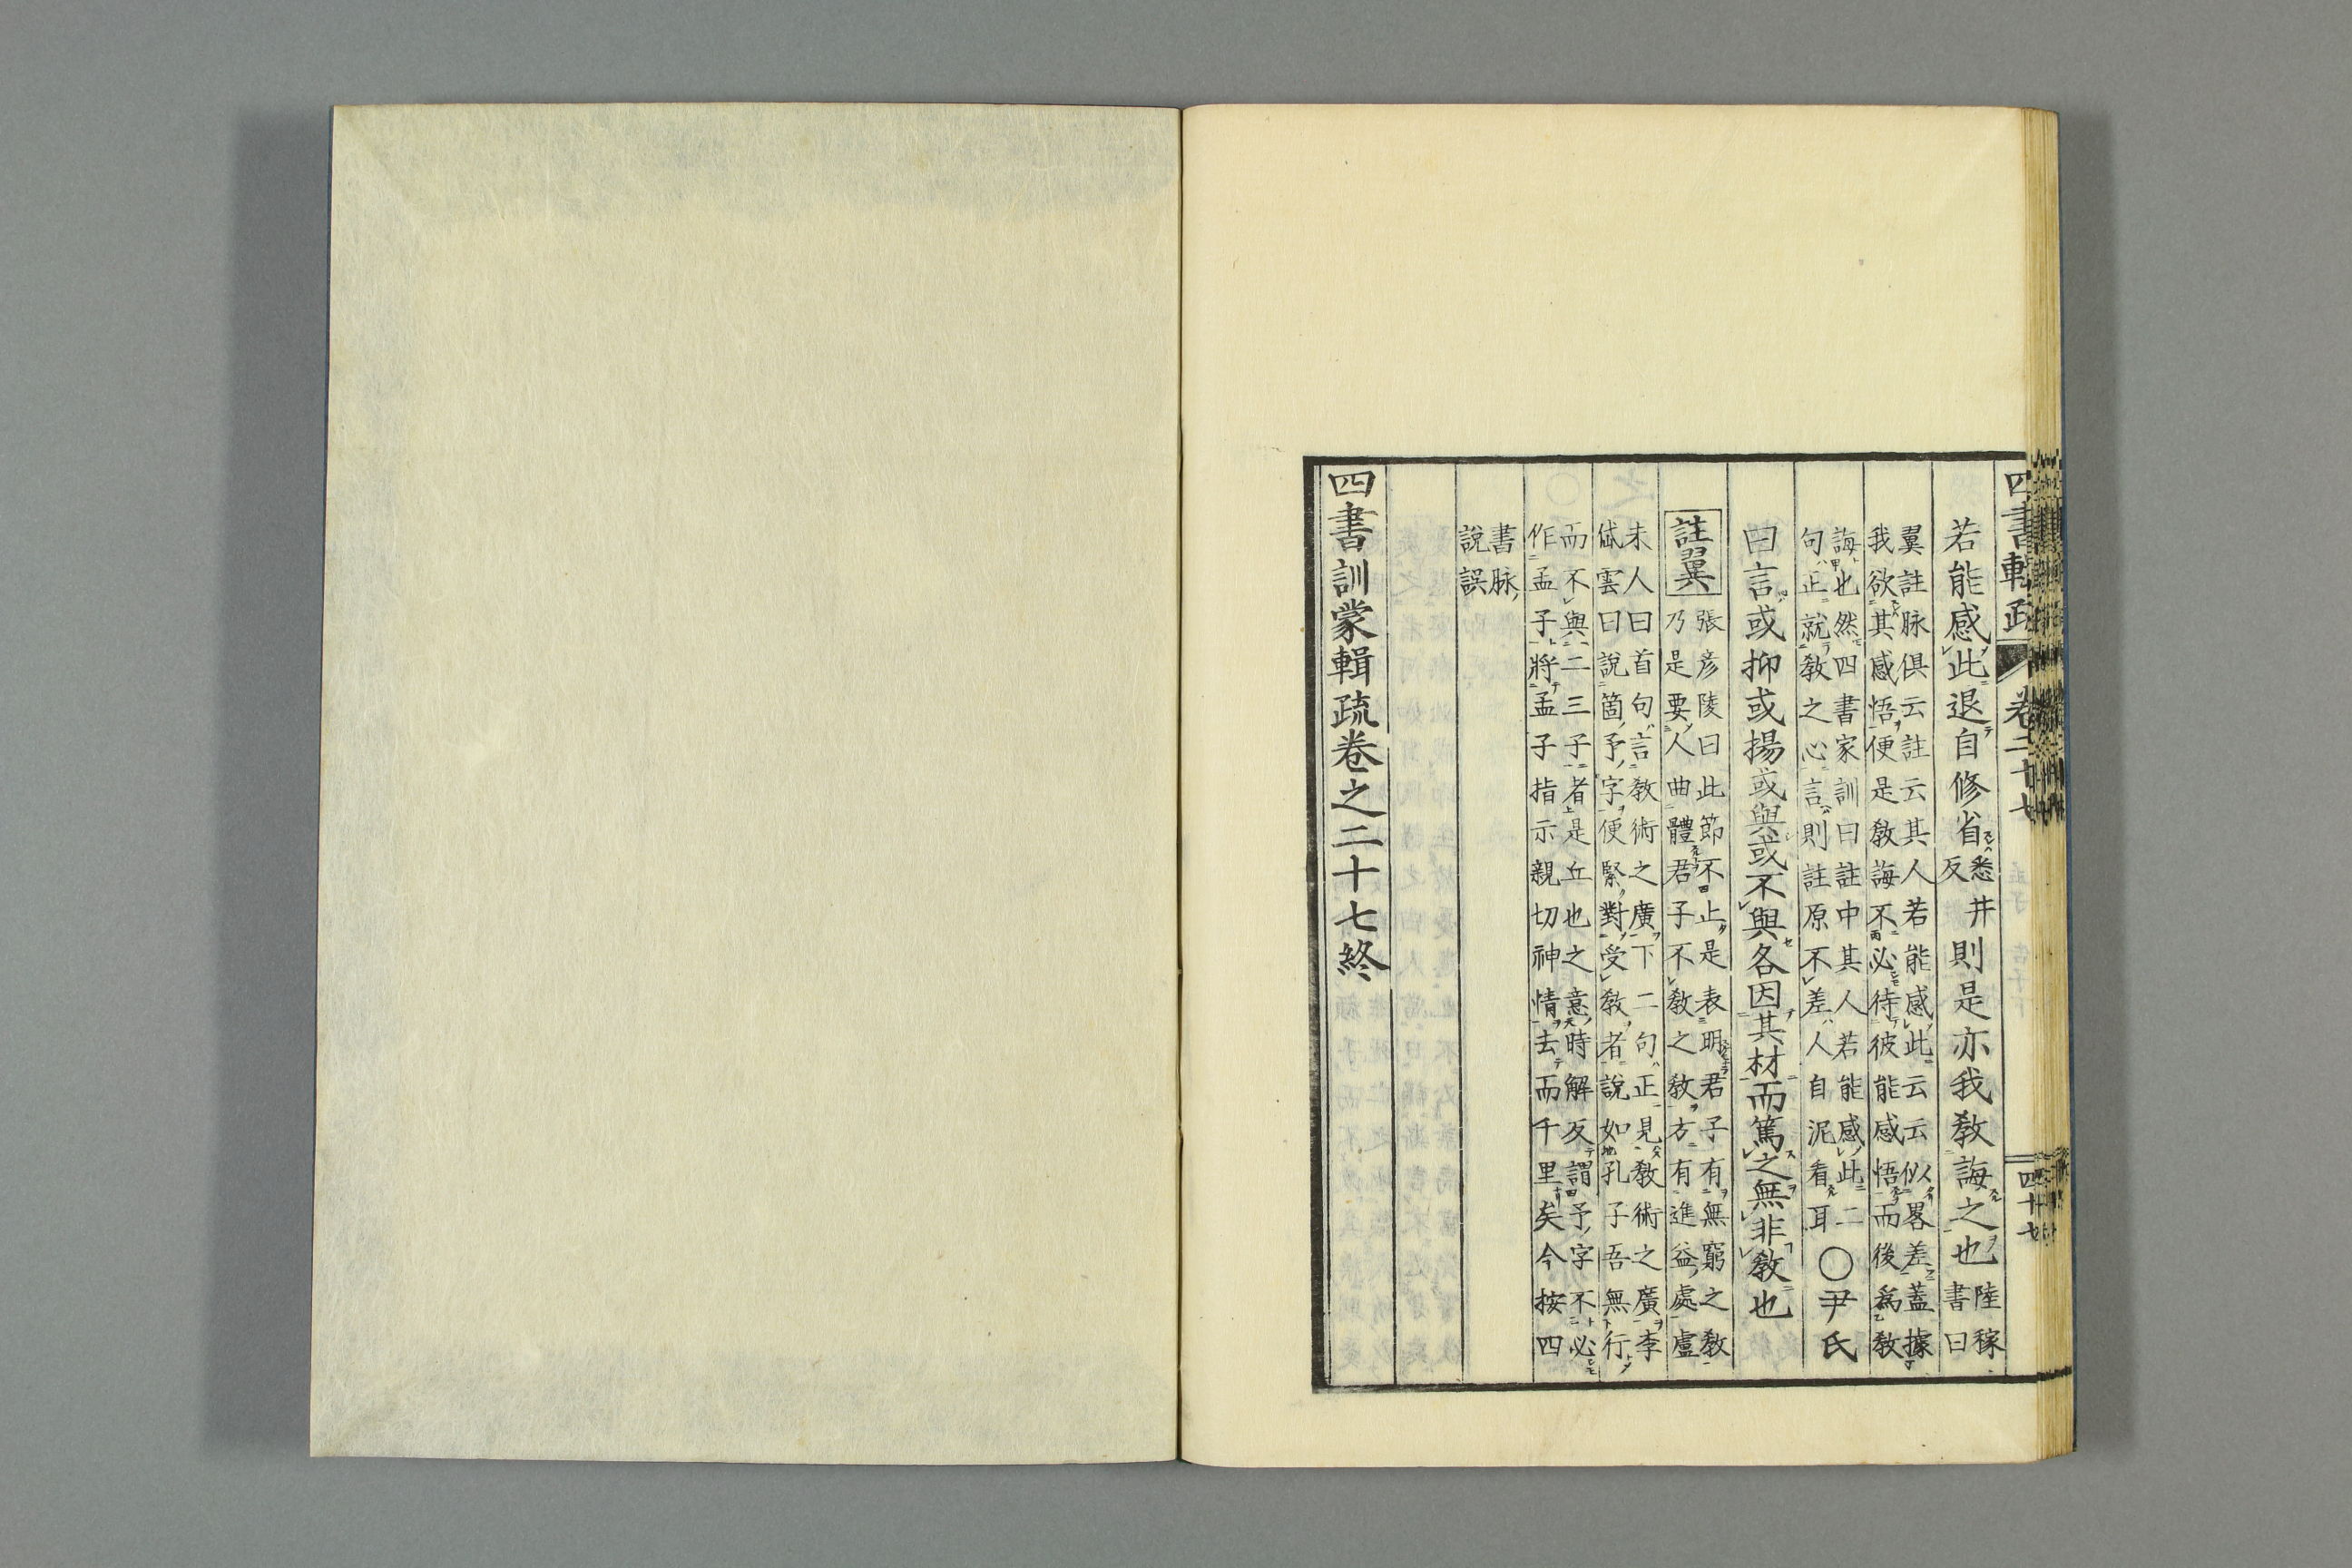 四書輯疏 卷二十七 四十七
若能感此退自修省悉井反則是亦我教誨之也陸稼書曰
翼註脉俱云註云其人若能感此云云似畧差蓋據
我欲其感悟便是教誨不必待彼能感悟而後爲教
誨也然四書家訓曰註中其人若能感此二
句正就教之心言則註原不差人自泥看耳
○尹氏
曰言或抑或揚或與或不與各因其材而篤之無非教也
註翼
張彦陵曰此節不止是表明君子有無窮之教
乃是要人曲體君子不教之教方有進益處盧
未人曰首句言教術之廣下二句正見教術之廣李
岱雲曰說箇予字便緊對受教者說如孔子吾無行
而不與二三子者是丘也之意時解反謂予字不必
作孟子將孟子指示親切神情去而千里矣今按四
書脉
說誤
四書訓蒙輯疏卷之二十七終